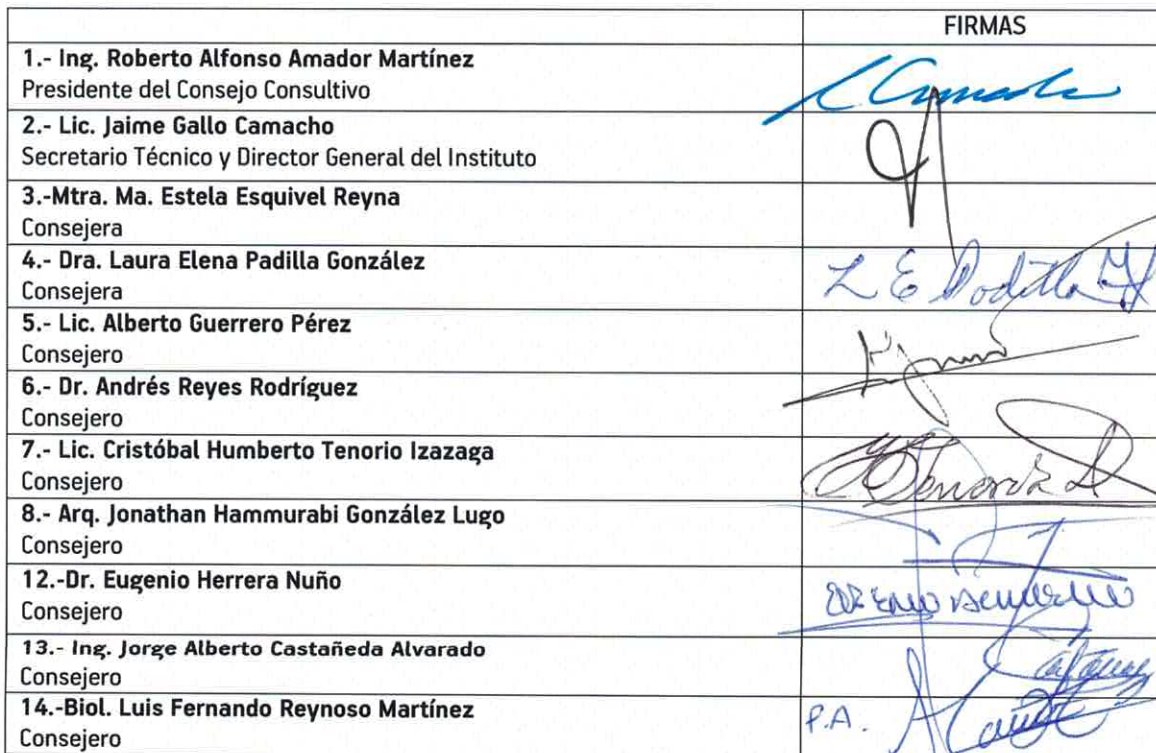 FIRMAS
1.- Ing. Roberto Alfonso Amador Martínez
Presidente del Consejo Consultivo
2.- Lic. Jaime Gallo Camacho
Secretario Técnico y Director General del Instituto
3.-Mtra. Ma. Estela Esquivel Reyna
Consejera
4.- Dra. Laura Elena Padilla González
Consejera
L E Padilla G
5.- Lic. Alberto Guerrero Pérez
Consejero
6.- Dr. Andrés Reyes Rodríguez
Consejero
7.- Lic. Cristóbal Humberto Tenorio Izazaga
Consejero
8.- Arq. Jonathan Hammurabi González Lugo
Consejero
12.-Dr. Eugenio Herrera Nuño
Consejero
13.- Ing. Jorge Alberto Castañeda Alvarado
Consejero
14.-Biol. Luis Fernando Reynoso Martínez
Consejero
P.A.